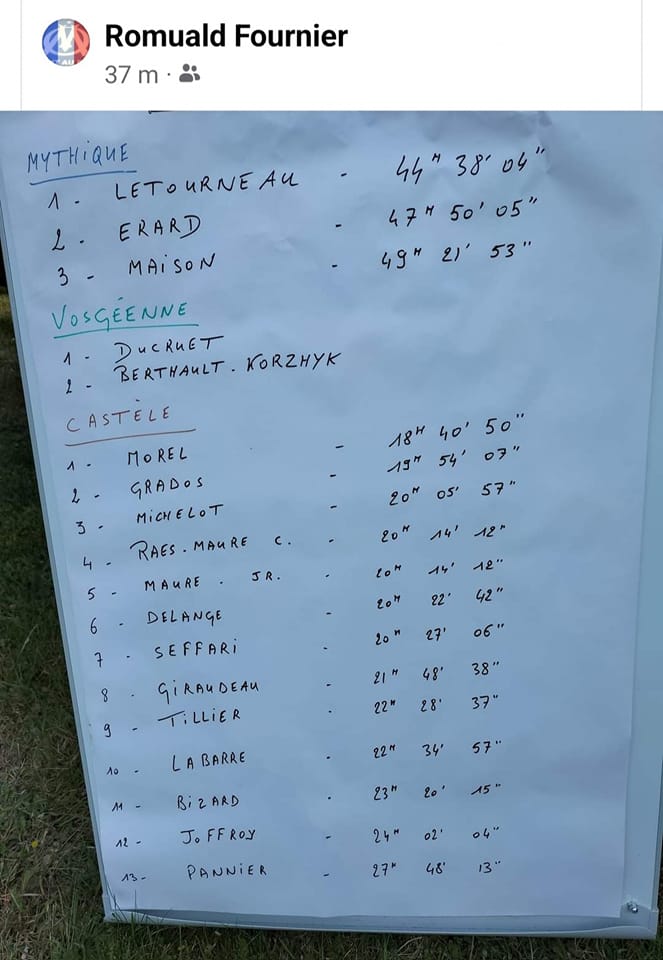 Romuald Fournier
37 m ·
MYTHIQUE
1 - LETOURNEAU - 44H 38' 04"
2 - ERARD - 47H 50' 05"
3 - MAISON - 49H 21' 53"
VOSGÉENNE
1 - DUCRUET
2 - BERTHAULT. KORZHYK
CASTÈLE
1 - MOREL - 18H 40' 50"
2 - GRADOS - 19H 54' 07"
3 - MICHELOT - 20H 05' 57"
4 - RAES. MAURE C. - 20H 14' 12"
5 - MAURE . JR. - 20H 14' 12"
6 - DELANGE - 20H 22' 42"
7 - SEFFARI - 20H 27' 06"
8 - GIRAUDEAU - 21H 48' 38"
9 - TILLIER - 22H 28' 37"
10 - LABARRE - 22H 34' 57"
11 - BIZARD - 23H 20' 15"
12 - JOFFROY - 24H 02' 04"
13 - PANNIER - 27H 48' 13"